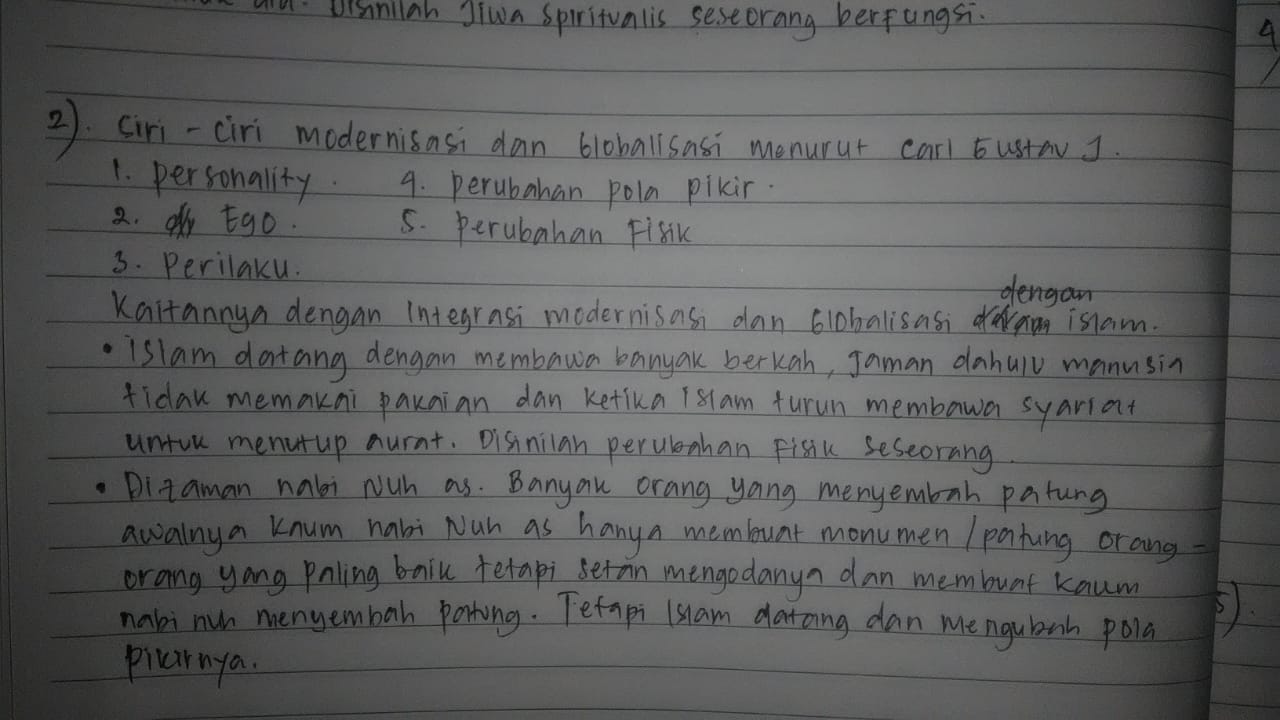 Disinilah Jiwa Spiritualis seseorang berfungsi.
4
2). Ciri - Ciri modernisasi dan Globalisasi menurut Carl Gustav J.
1. personality. 4. perubahan pola pikir.
2. Ego. 5. perubahan Fisik
3. Perilaku.
dengan
Kaitannya dengan Integrasi modernisasi dan Globalisasi islam.
• islam datang dengan membawa banyak berkah, Jaman dahulu manusia
tidak memakai pakaian dan ketika islam turun membawa syariat
untuk menutup aurat. Disinilah perubahan Fisik seseorang.
• Dizaman nabi Nuh as. Banyak orang yang menyembah patung
awalnya Kaum nabi Nuh as hanya membuat monumen / patung orang -
orang yang paling baik tetapi setan mengodanya dan membuat Kaum
nabi nuh menyembah patung. Tetapi Islam datang dan Mengubah pola
5).
Pikirnya.